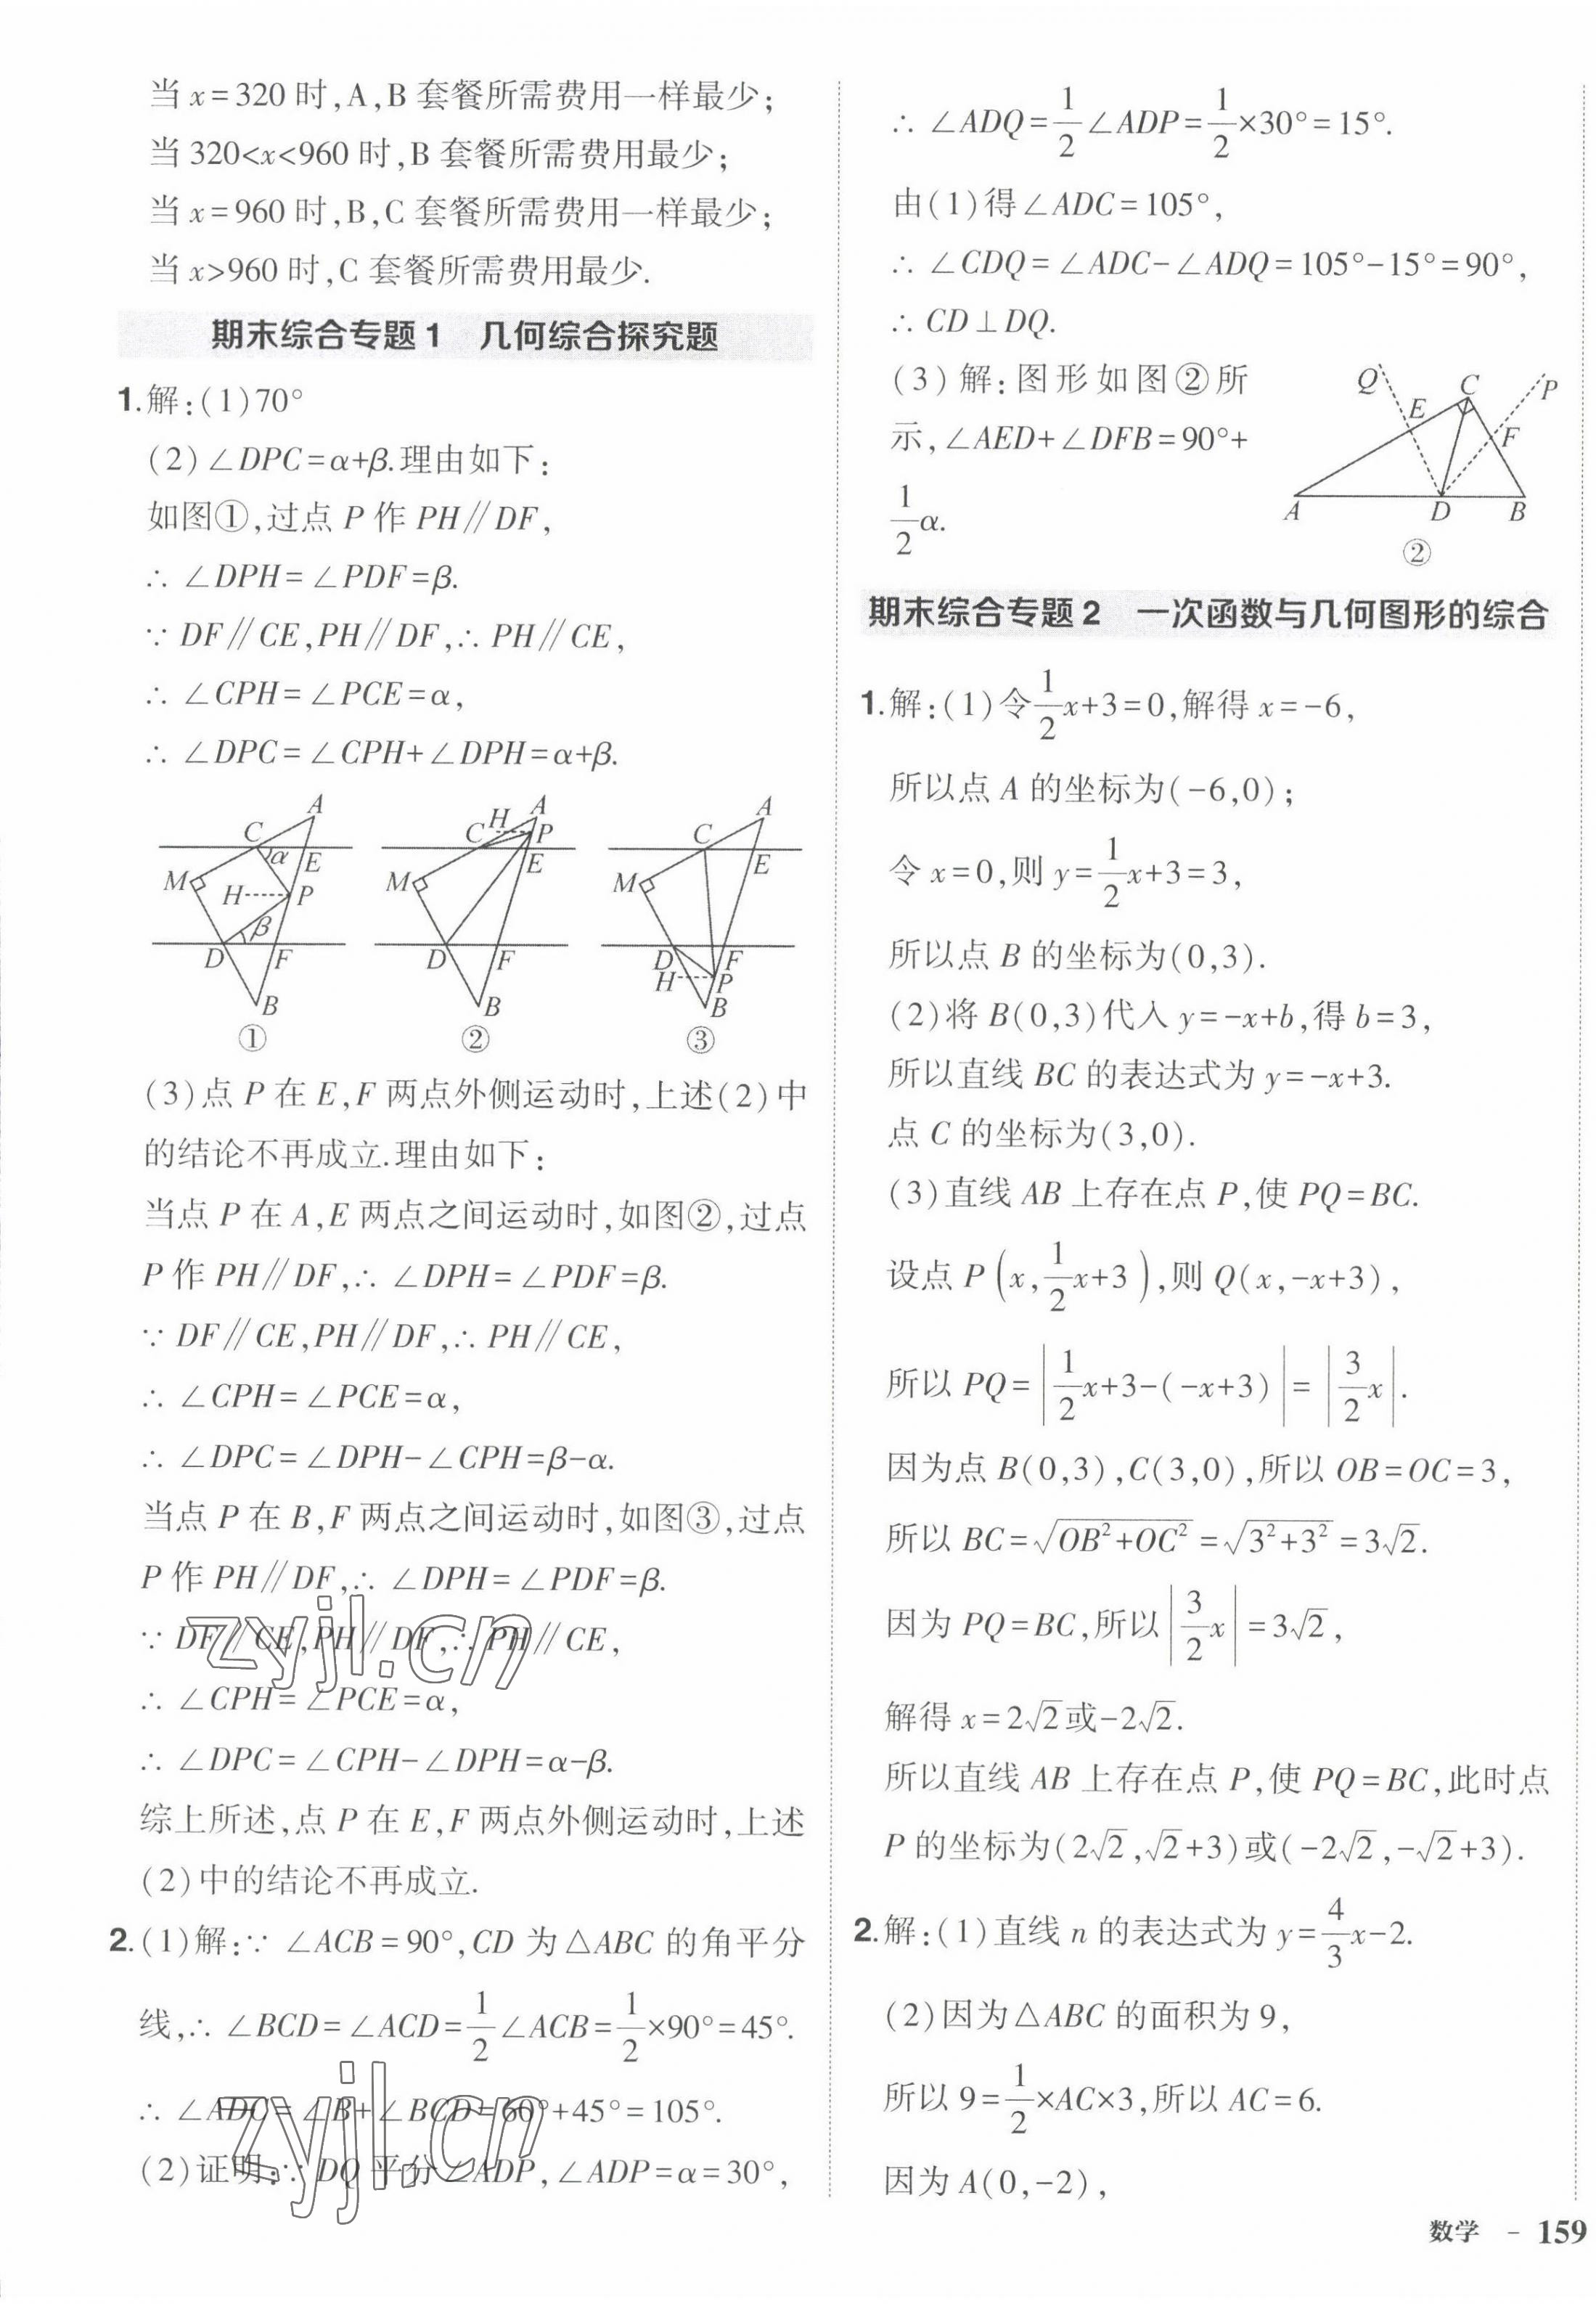 当 x=320 时,A,B 套餐所需费用一样最少;
当 320<x<960 时,B 套餐所需费用最少;
当 x=960 时,B,C 套餐所需费用一样最少;
当 x>960 时,C 套餐所需费用最少.
期末综合专题1 几何综合探究题
1.解:(1)70°
(2)∠DPC=α+β.理由如下:
如图①,过点 P 作 PH∥DF,
∴ ∠DPH=∠PDF=β.
∵ DF∥CE,PH∥DF,∴ PH∥CE,
∴ ∠CPH=∠PCE=α,
∴ ∠DPC=∠CPH+∠DPH=α+β.
A C α E M H P β D F B ①
H A C P E M D F B ②
A C E M D F H P B ③
(3)点 P 在 E,F 两点外侧运动时,上述(2)中
的结论不再成立.理由如下:
当点 P 在 A,E 两点之间运动时,如图②,过点
P 作 PH∥DF,∴ ∠DPH=∠PDF=β.
∵ DF∥CE,PH∥DF,∴ PH∥CE,
∴ ∠CPH=∠PCE=α,
∴ ∠DPC=∠DPH-∠CPH=β-α.
当点 P 在 B,F 两点之间运动时,如图③,过点
P 作 PH∥DF,∴ ∠DPH=∠PDF=β.
∵ DF∥CE,PH∥DF,∴ PH∥CE,
zyjl.cn
∴ ∠CPH=∠PCE=α,
∴ ∠DPC=∠CPH-∠DPH=α-β.
综上所述,点 P 在 E,F 两点外侧运动时,上述
(2)中的结论不再成立.
2.(1)解:∵ ∠ACB=90°,CD 为△ABC 的角平分
线,∴ ∠BCD=∠ACD=1/2∠ACB=1/2×90°=45°.
∴ ∠ADC=∠B+∠BCD=60°+45°=105°.
zyjl.cn
(2)证明:∵ DQ 平分∠ADP,∠ADP=α=30°,
∴ ∠ADQ=1/2∠ADP=1/2×30°=15°.
由(1)得∠ADC=105°,
∴ ∠CDQ=∠ADC-∠ADQ=105°-15°=90°,
∴ CD⊥DQ.
(3)解:图形如图②所
示,∠AED+∠DFB=90°+
1/2α.
Q C P E F A D B ②
期末综合专题2 一次函数与几何图形的综合
1.解:(1)令1/2x+3=0,解得 x=-6,
所以点 A 的坐标为(-6,0);
令 x=0,则 y=1/2x+3=3,
所以点 B 的坐标为(0,3).
(2)将 B(0,3)代入 y=-x+b,得 b=3,
所以直线 BC 的表达式为 y=-x+3.
点 C 的坐标为(3,0).
(3)直线 AB 上存在点 P,使 PQ=BC.
设点 P(x,1/2x+3),则 Q(x,-x+3),
所以 PQ=|1/2x+3-(-x+3)|=|3/2x|.
因为点 B(0,3),C(3,0),所以 OB=OC=3,
所以 BC=√(OB²+OC²)=√(3²+3²)=3√2.
因为 PQ=BC,所以|3/2x|=3√2,
解得 x=2√2或-2√2.
所以直线 AB 上存在点 P,使 PQ=BC,此时点
P 的坐标为(2√2,√2+3)或(-2√2,-√2+3).
2.解:(1)直线 n 的表达式为 y=4/3x-2.
(2)因为△ABC 的面积为 9,
所以 9=1/2×AC×3,所以 AC=6.
因为 A(0,-2),
数学 - 159